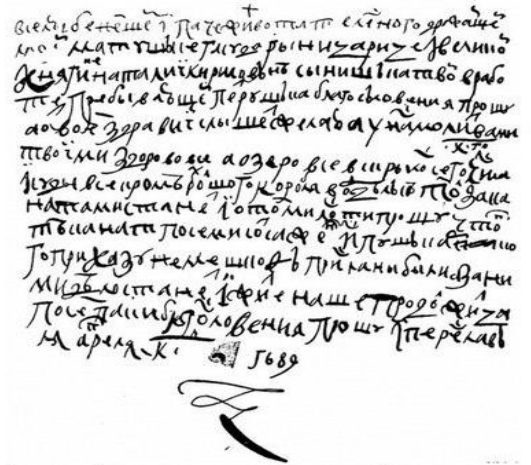 вселюбезнешеi паче живота телесного дражаiше
моеi матушъке гасударыни царице i великоi
княгине наталиi кириловне сынишька твоi в рабо
те пребываюшеi петрушька благословения прошу
а о твоем здравиi слышеть желаю а у нас молитвами
твоiми здорово все а озеро все вскрылось сего числа
i суды все кромъ болшого корабля в одълкъ толко за кана
натами станет i о том милости прошу чтоп
тъ канаты по семисот сажен ис пушкарско
го приказу не мешкоф присланы были а за ни
ми дъло станет i житие наше продолжица
по сем паки благословения прошу iс переславъ
ля апреля К. 1689